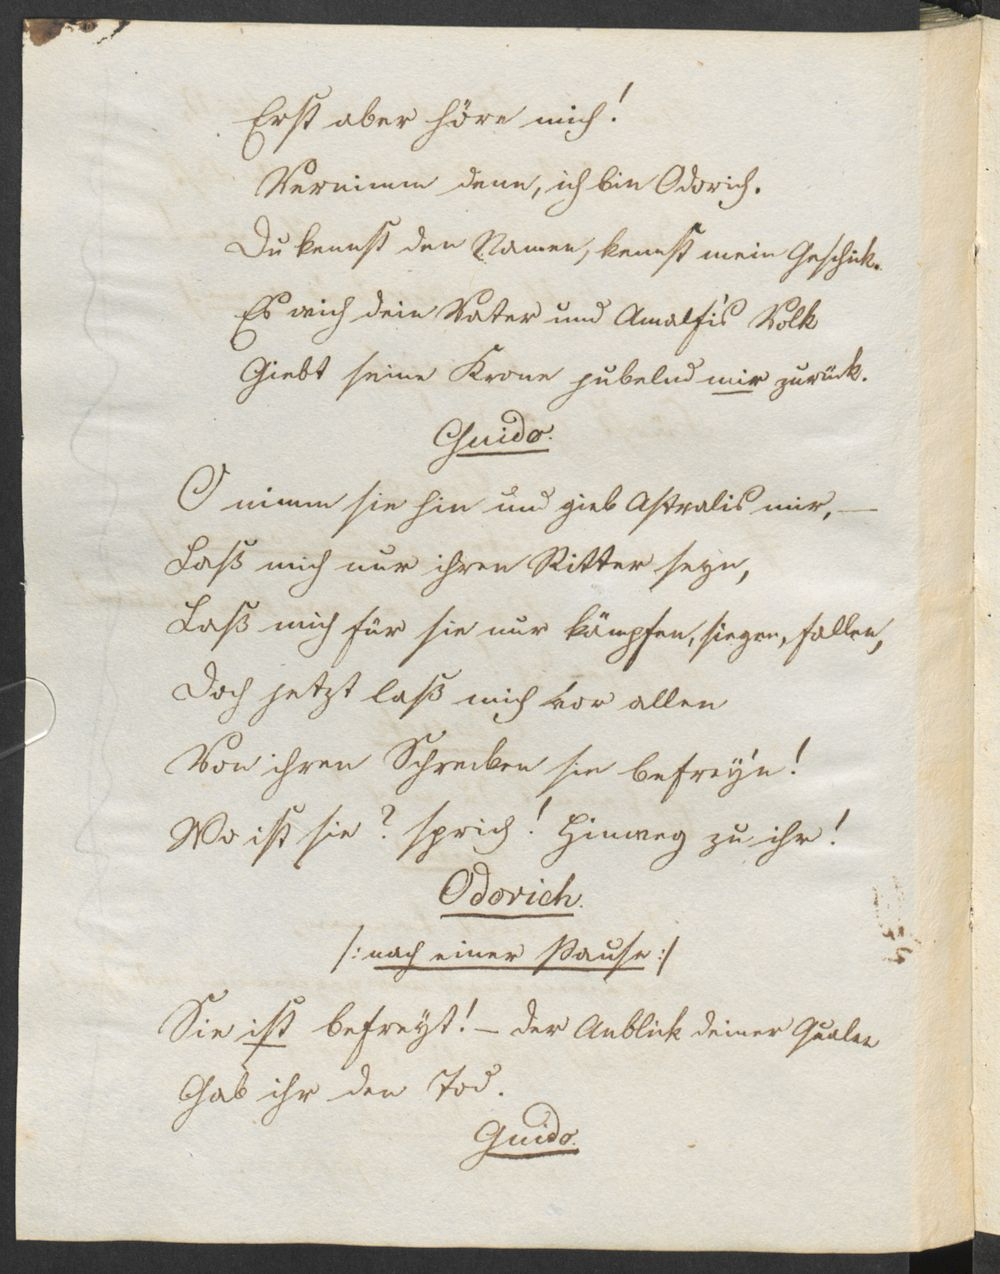 Erst aber höre mich!
Vernimm denn, ich bin Odorich.
Du kennst den Namen, kennst mein Geschick.
Es wich dein Vater und Amalfi's Volk
Giebt seine Krone jubelnd mir zurück.
Guido.
O nimm sie hin und gieb Astralis mir, —
Laß mich nur ihren Ritter seyn,
Laß mich für sie nur kämpfen, siegen, fallen,
Doch jetzt laß mich vor allen
Von ihren Schrecken sie befrey'n!
Wo ist sie? sprich! Hinweg zu ihr!
Odorich.
/: nach einer Pause :/
Sie ist befreyt! — der Anblick deiner Qualen
Gab ihr den Tod.
Guido.